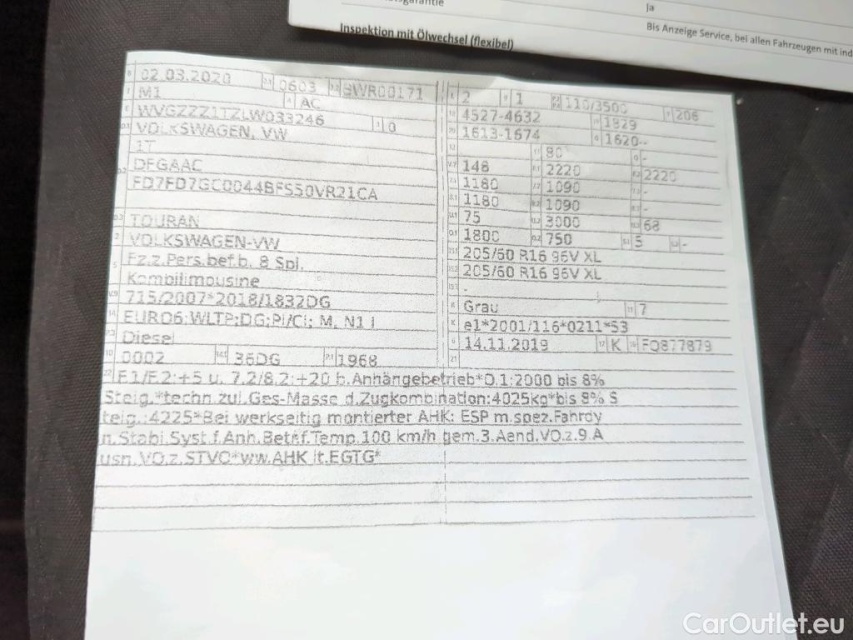 Ja
Inspektion mit Ölwechsel (flexibel)
Bis Anzeige Service, bei allen Fahrzeugen mit ind
02.03.2020 0603 BWR00171
M1 AC
WVGZZZ1TZLW033246 0
VOLKSWAGEN, VW
1T
DFGAAC
FD7FD7GC0044BFS50VR21CA
TOURAN
VOLKSWAGEN-VW
Fz.z.Pers.bef.b. 8 Spl.
Kombilimousine
715/2007*2018/1832DG
EURO6;WLTP;DG;PI/CI; M, N1 I
Diesel
0002 36DG 1968
2 1 110/3500 206
4527-4632 1829
1613-1674 1620--
80 -
146 2220 2220
1180 1090 -
1180 1090 -
75 3000 68
1800 750 5 -
205/60 R16 96V XL
205/60 R16 96V XL
-
Grau 7
e1*2001/116*0211*53
14.11.2019 K FO877879
F.1/F.2:+5 u. 7.2/8.2:+20 b.Anhängebetrieb*O.1:2000 bis 8%
Steig.*techn.zul.Ges-Masse d.Zugkombination:4025kg*bis 8% S
teig.:4225*Bei werkseitig montierter AHK: ESP m.spez.Fahrdy
n.Stabi.Syst.f.Anh.Betr.f.Temp.100 km/h gem.3.Aend.VO.z.9.A
usn.VO.z.STVO*ww.AHK lt.EGTG*
CarOutlet.eu